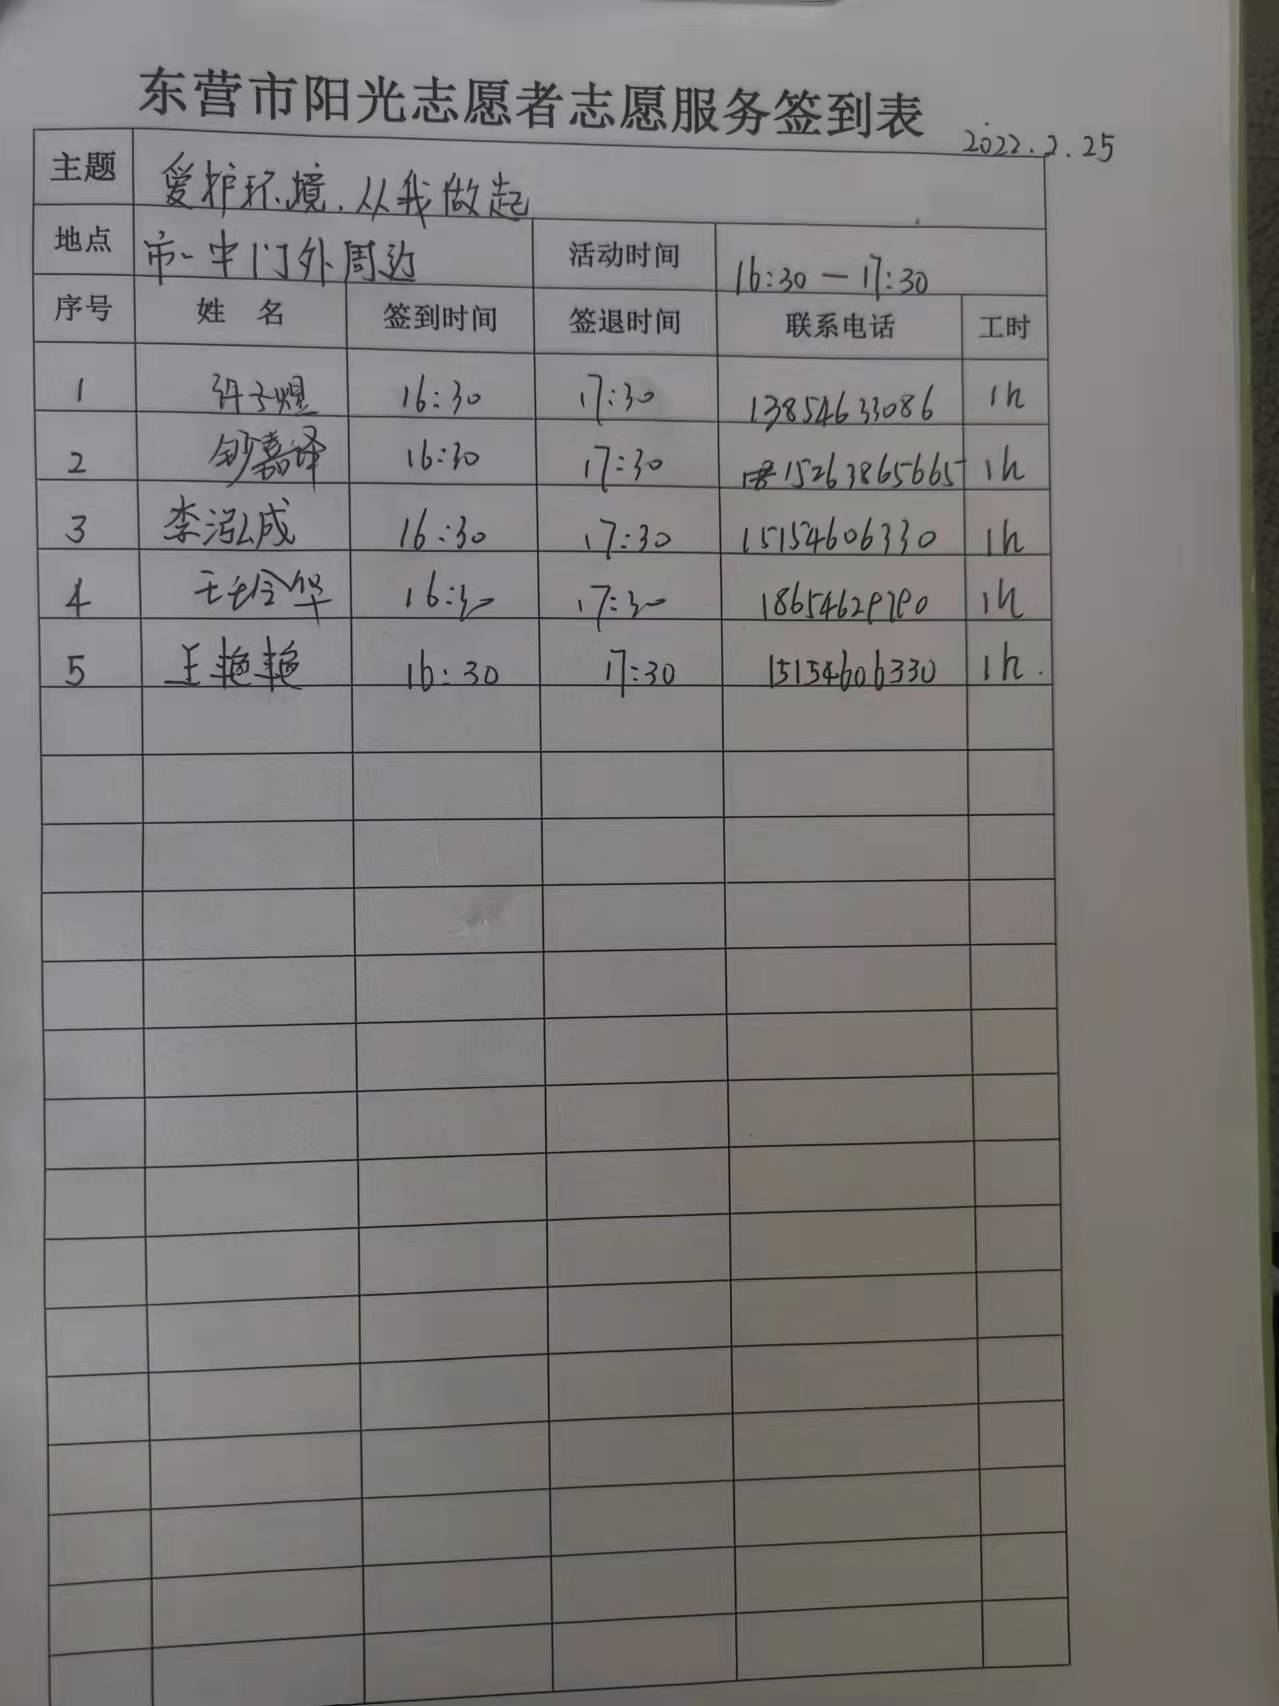 东营市阳光志愿者志愿服务签到表
2022.2.25
主题 爱护环境.从我做起
地点 市一中门外周边 活动时间 16:30-17:30
序号 姓名 签到时间 签退时间 联系电话 工时
1 许子煜 16:30 17:30 13854633086 1h
2 郐嘉译 16:30 17:30 15263865665 1h
3 李泓成 16:30 17:30 15154606330 1h
4 16:30 17:30 1h
5 王艳艳 16:30 17:30 15154606330 1h.